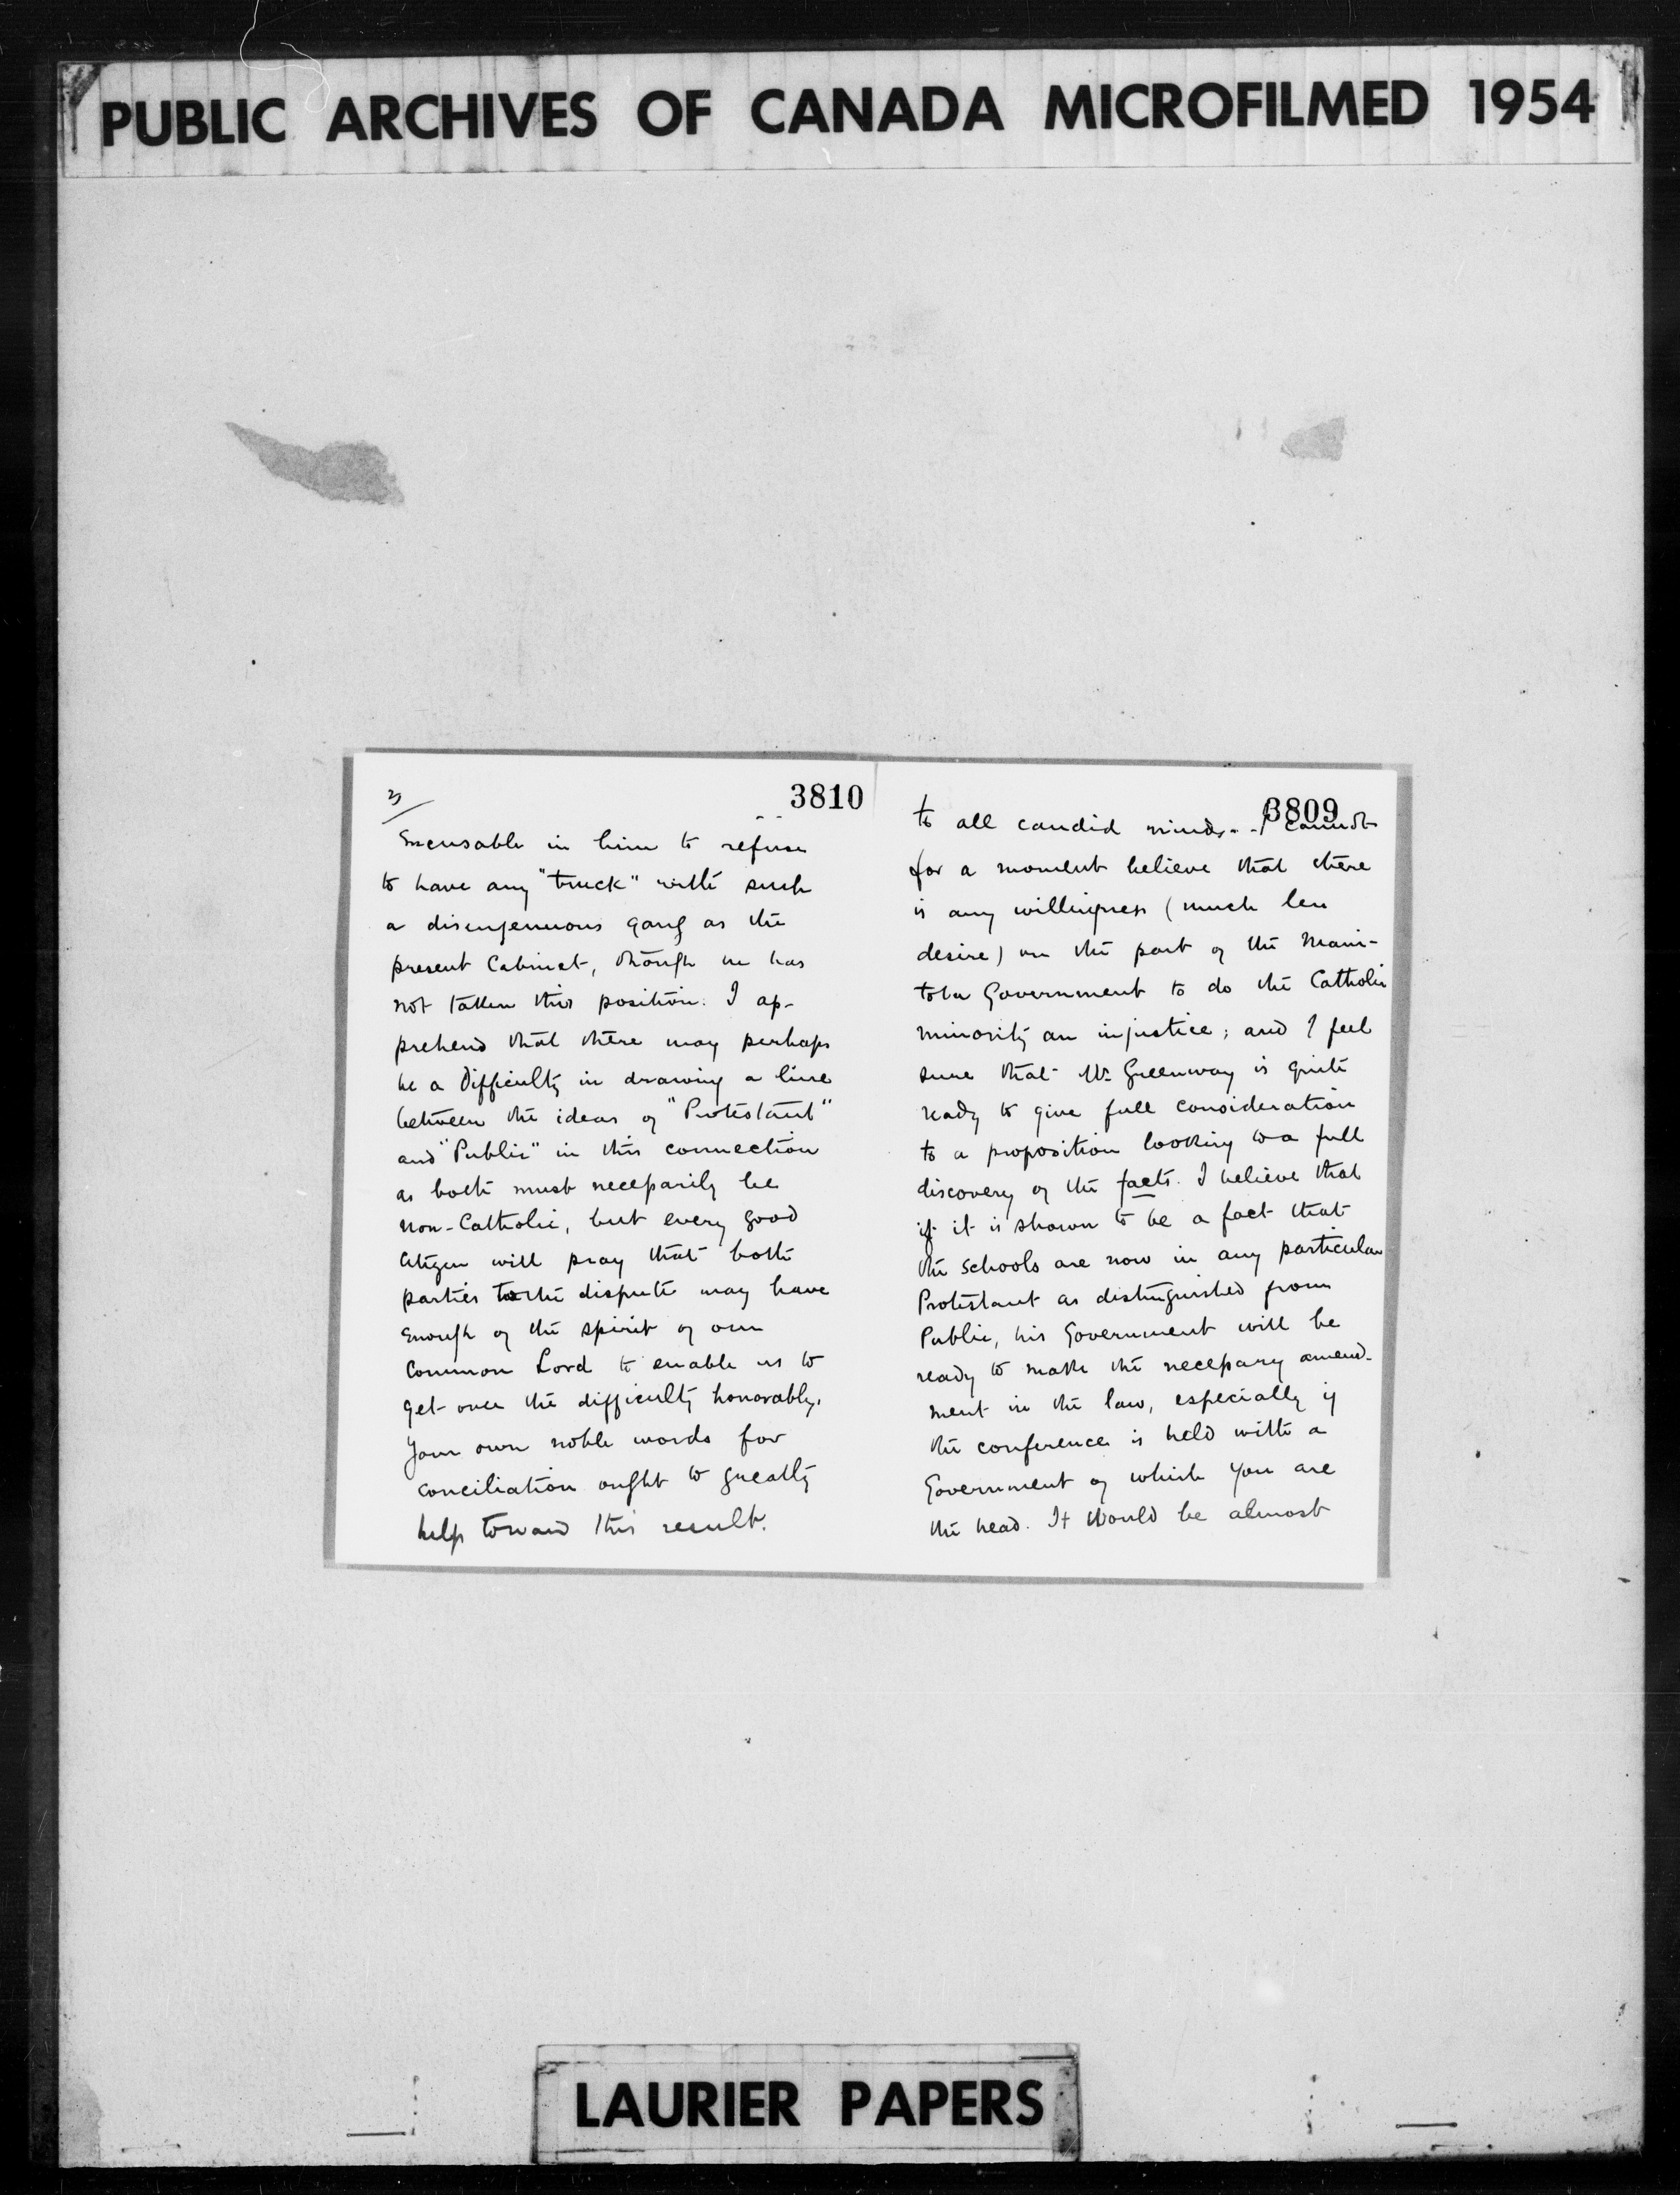 PUBLIC ARCHIVES OF CANADA MICROFILMED 1954
3/
3810
Excusable in him to refuse
to have any "truck" with such
a disengenuous gang as the
present Cabinet, though he has
not taken this position. I ap-
prehend that there may perhaps
be a difficulty in drawing a line
between the ideas of "Protestant"
and "Public" in this connection
as both must necessarily be
non-Catholic, but every good
Citizen will pray that both
parties to the dispute may have
enough of the spirit of our
Common Lord to enable us to
get over the difficulty honorably.
Your own noble words for
conciliation ought to greatly
help toward this result.
3809
to all candid minds. I cannot
for a moment believe that there
is any willingness (much less
desire) on the part of the Mani-
toba Government to do the Catholic
minority an injustice; and I feel
sure that Mr. Greenway is quite
ready to give full consideration
to a proposition looking to a full
discovery of the facts. I believe that
if it is shown to be a fact that
the schools are now in any particular
Protestant as distinguished from
Public, his Government will be
ready to make the necessary amend-
ment in the law, especially if
the conference is held with a
Government of which you are
the head. It would be almost
LAURIER PAPERS